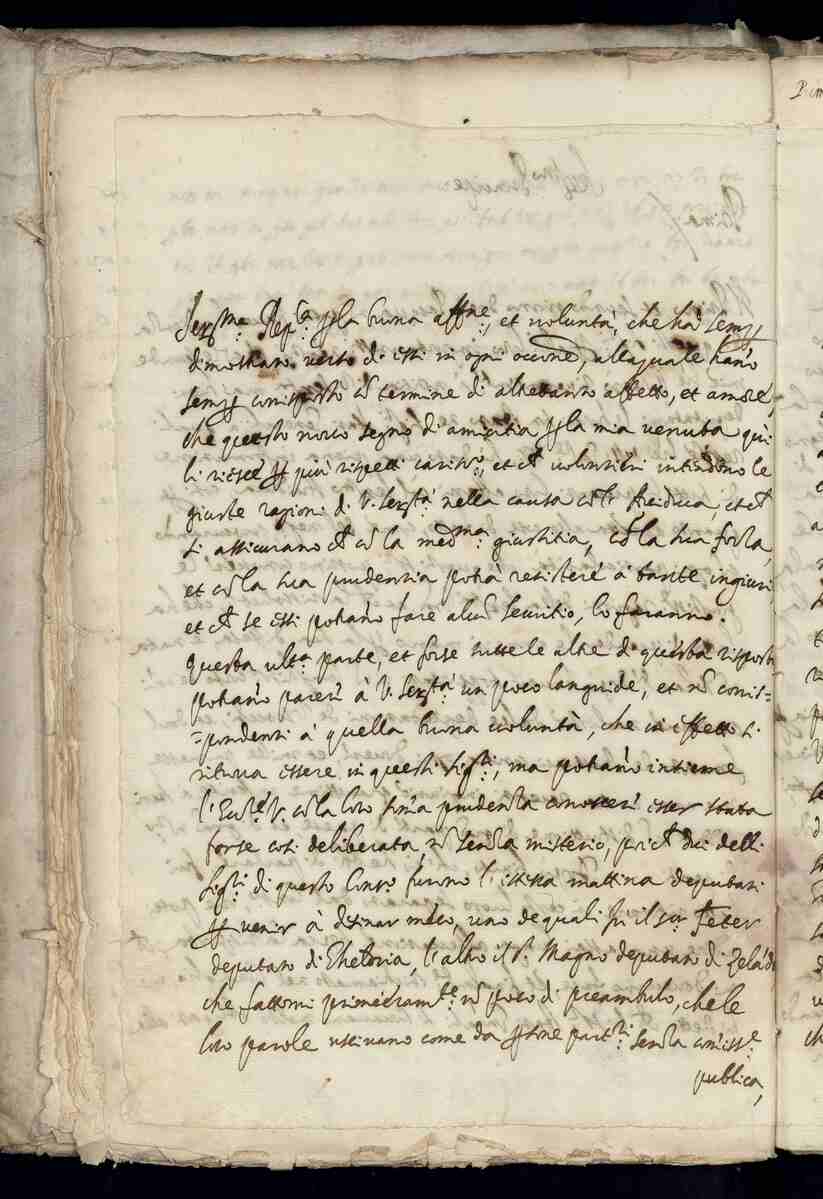 Ser.ma Rep.ca p la buona aff.ne, et uoluntà, che hà semp
dimostrato uerso di essi in ogni occ.one, alla quale hano
semp corrisposto cō termine di altretanto affetto, et amore,
che questo nouo segno di amicitia p la mia uenuta quì
li riesce p più rispetti cariss.o, et ch uolontieri intendono le
giuste ragioni di V. Ser.tà nella causa cō l' Arciduca, et ch
si assicurano ch cō la med.ma giustitia, cō la sua forza,
et cō la sua prudentia potrà resistere à tante ingiurie
et ch se essi potrano fare alcū seruitio, lo faranno.
Questa ult.a parte, et forse tutte le altre di questa risposta
potrano parere à V. Ser.tà un poco languide, et nō corris=
=pondenti à quella buona uoluntà, che in effetto si
ritroua essere in questi Sig.ri, ma potrano insieme
l' Ecc.e V. cō la loro soma prudenza conoscere esser stata
forse così deliberata nō senza misterio, perch dui delli
Sig.ri di questo Cons.o furono l' istessa mattina deputati
p uenir à desinar meco, uno de quali fù il Sr
deputato di Gheldria, l' altro il S. Magno deputato di Zelāda
che fattomi primieram.te nō poco di preambulo, che le
loro parole usciuano come da psone part.ri senza comiss.e
publica,